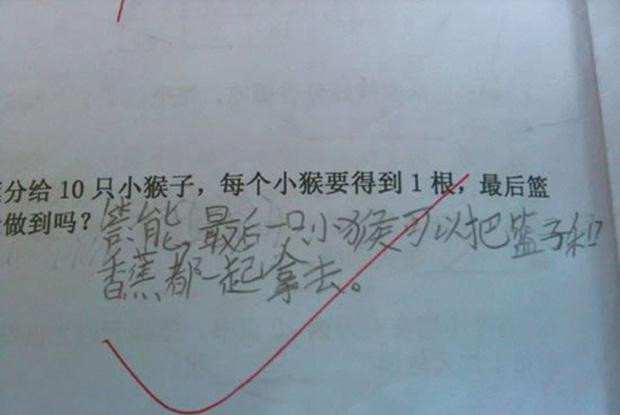 分给 10 只小猴子，每个小猴要得到 1 根，最后篮
做到吗？答能，最后一只小猴可以把篮子和
香蕉都一起拿去。